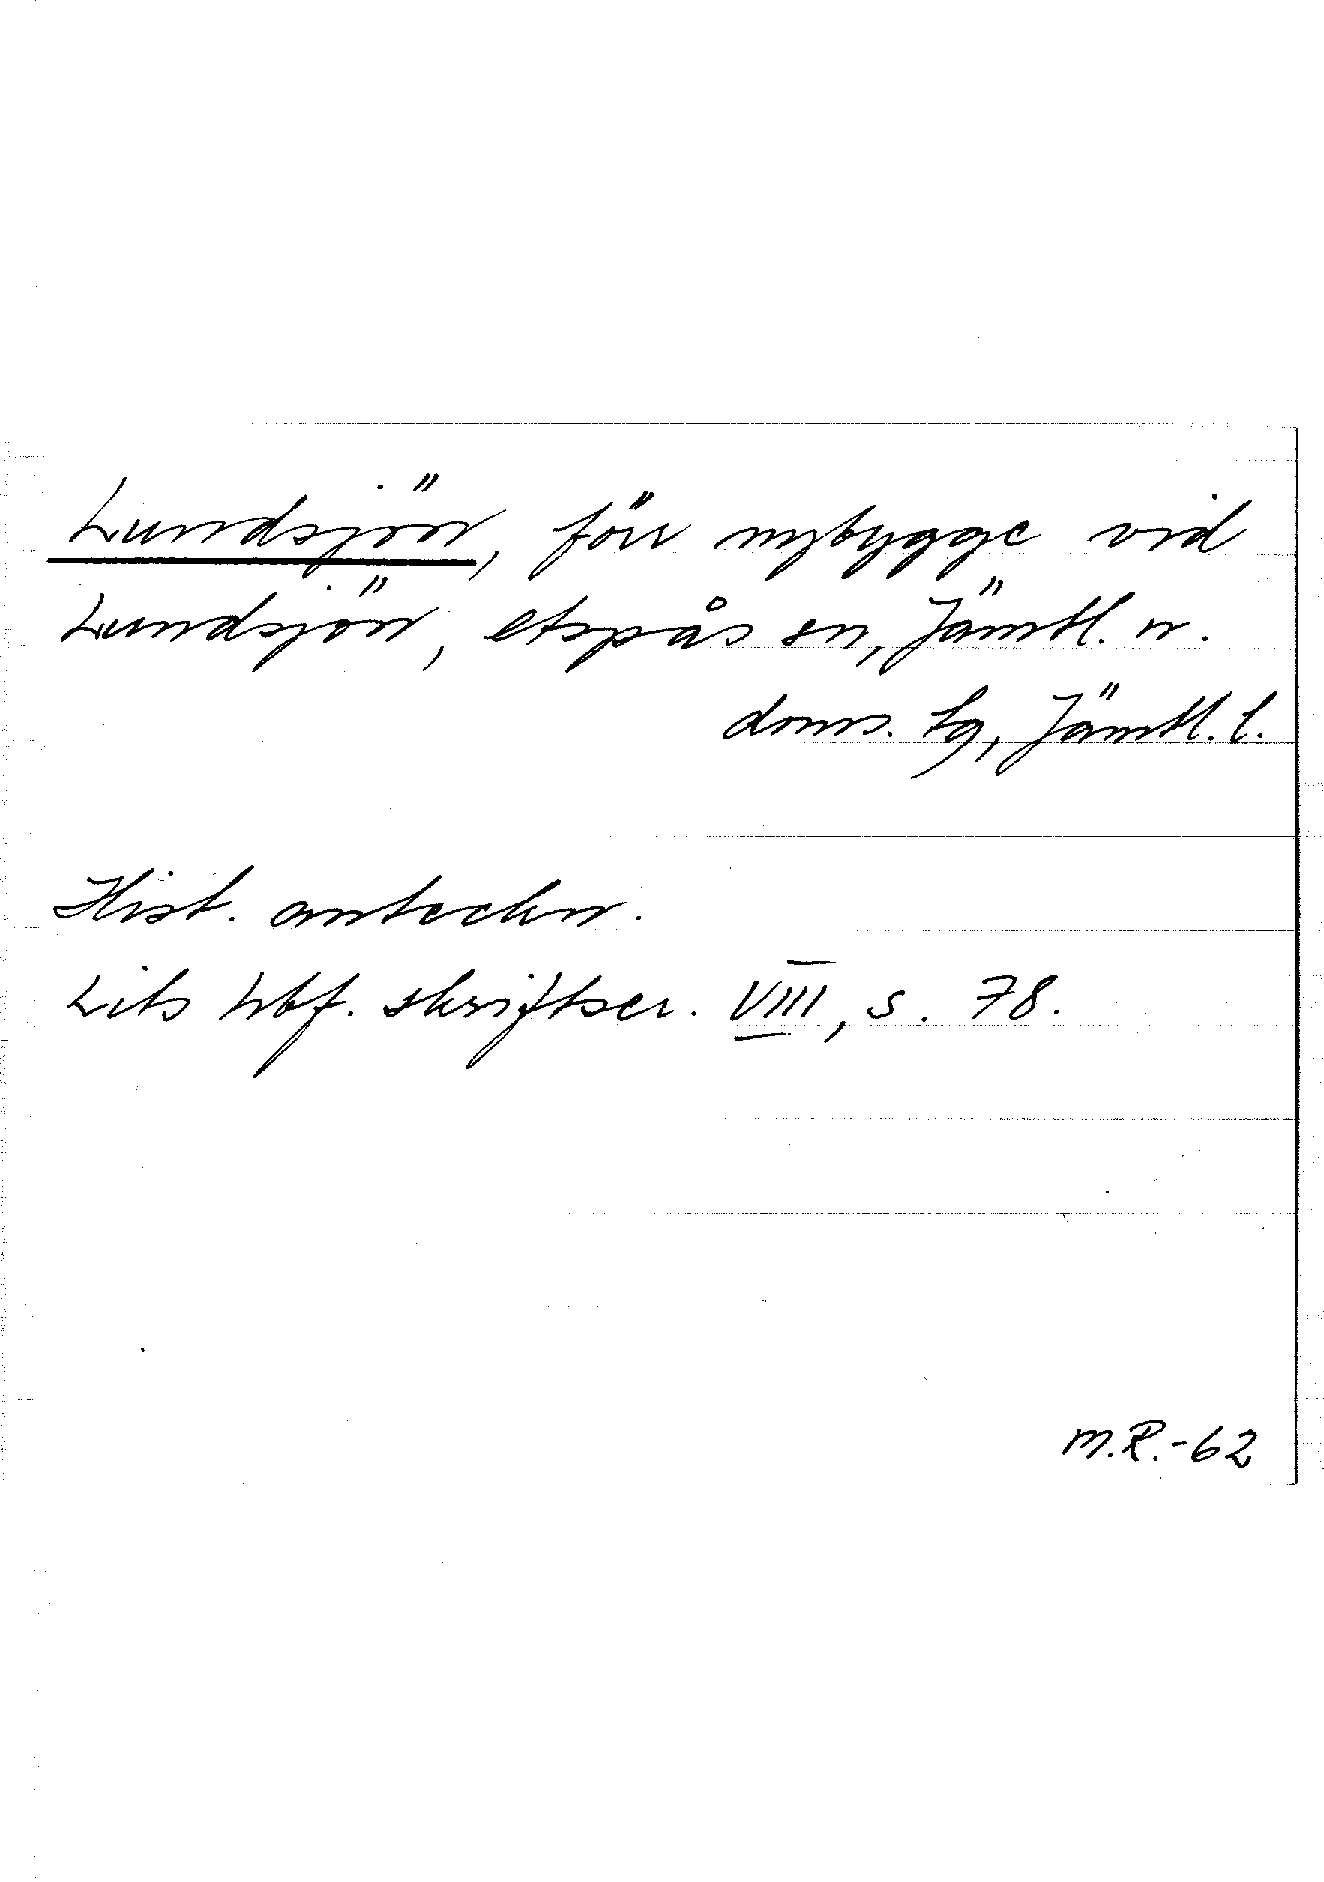 Lundsjön, förr nybygge vid
Lundsjön, Aspås sn, Jämtl. n.
doms. tg, Jämtl. l.
Hist. anteckn.
Lits hbf. skriftser. VIII, s. 78.
M.R.-62